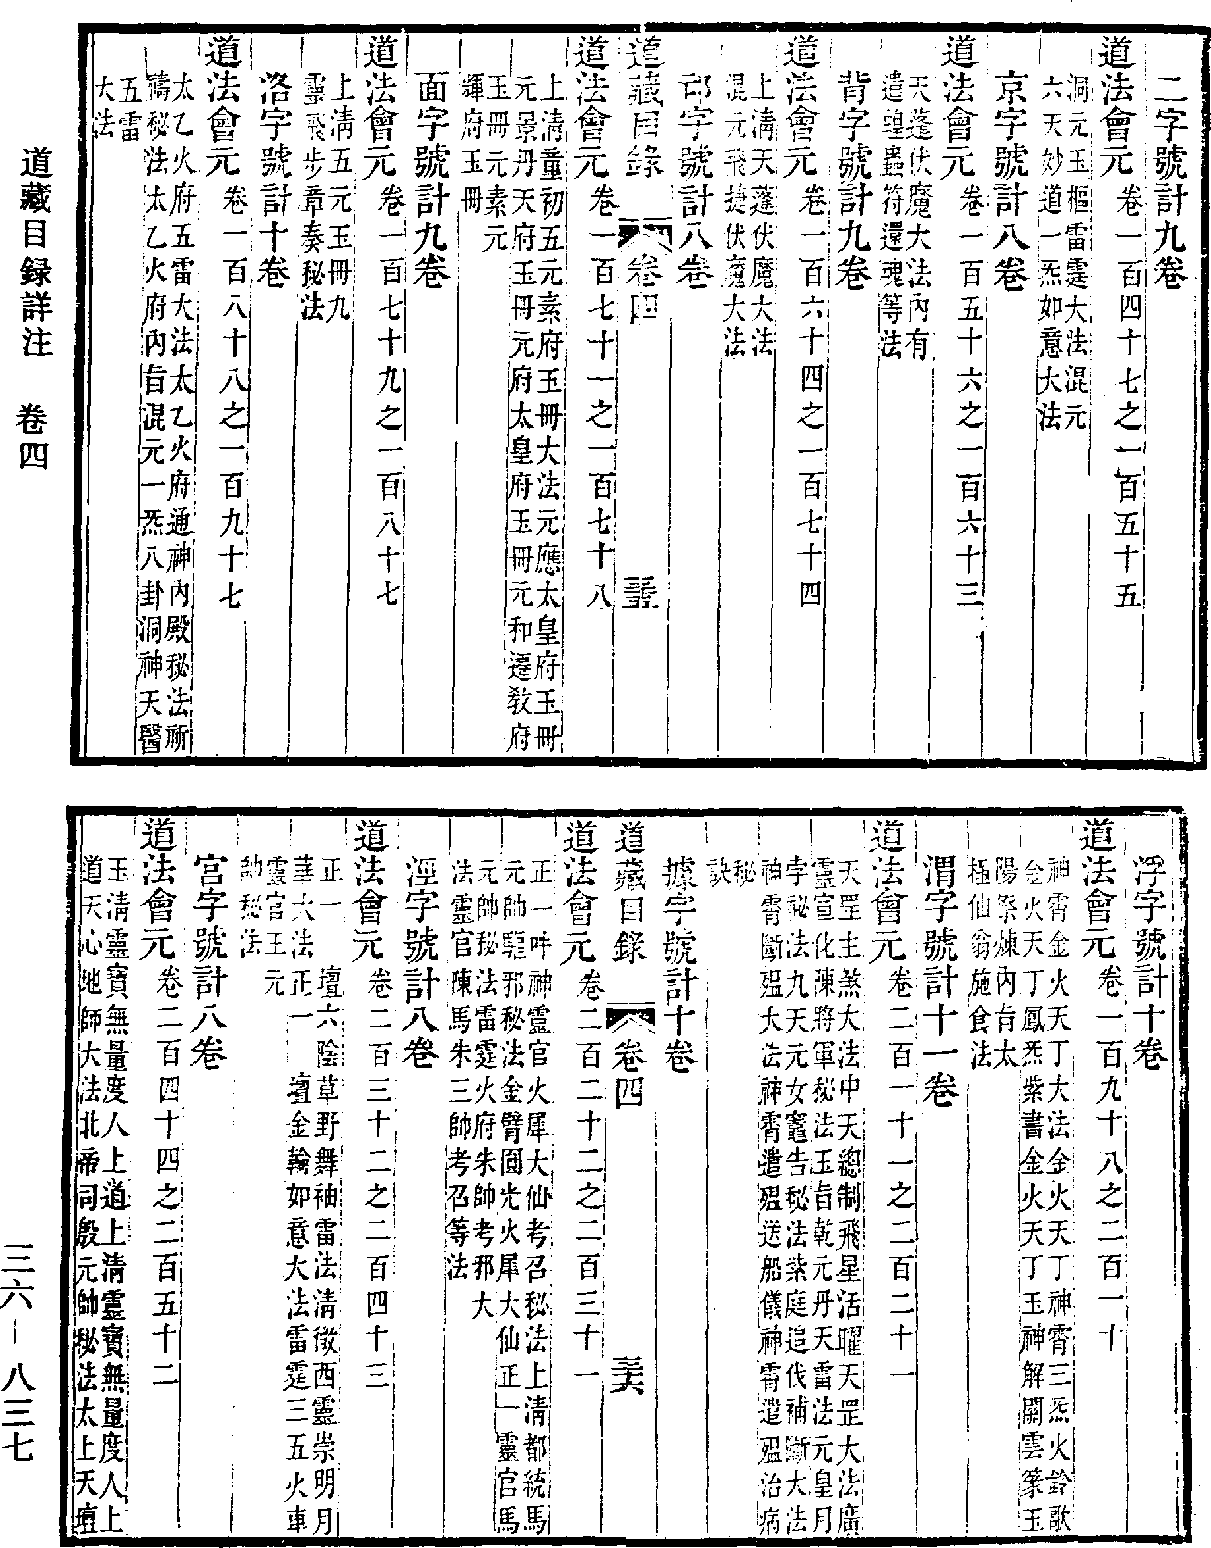 二字號計九卷
道法會元卷一百四十七之一百五十五
洞元玉樞雷霆大法混元
六天妙道一炁如意大法
京字號計八卷
道法會元卷一百五十六之一百六十三
天蓬伏魔大法內有
遣蝗蟲符還魂等法
背字號計九卷
道法會元卷一百六十四之一百七十四
上清天蓬伏魔大法
混元飛捷伏魔大法
邙字號計八卷
道藏目錄 卷四
道法會元卷一百七十一之一百七十八
上清童初五元素府玉冊大法元應太皇府玉冊
元景丹天府玉冊元府太皇府玉冊元和遷教府
玉冊元素元
輝府玉冊
面字號計九卷
道法會元卷一百七十九之一百八十七
上清五元玉冊九
靈飛步章奏秘法
洛字號計十卷
道法會元卷一百八十八之一百九十七
太乙火府五雷大法太乙火府通神內殿秘法祈
禱秘法太乙火府內旨混元一炁八卦洞神天醫
五雷
大法
浮字號計十卷
道法會元卷一百九十八之二百一十
神霄金火天丁大法金火天丁神霄三炁火鈴歌
金火天丁鳳炁紫書金火天丁玉神解關雲篆玉
陽祭煉內旨太
極仙翁施食法
渭字號計十一卷
道法會元卷二百一十一之二百二十一
天罡主煞大法中天總制飛星活曜天罡大法廣
靈宣化陳將軍秘法玉旨乾元丹天雷法元皇月
孛秘法九天元女竈告秘法紫庭追伐補斷大法
神霄斷瘟大法神霄遣瘟送船儀神霄遣瘟治病
秘
訣
據字號計十卷
道藏目錄 卷四 
道法會元卷二百二十二之二百三十一
正一吽神靈官火犀大仙考召秘法上清都統馬
元帥驅邪秘法金臂圓光火犀大仙正一靈官馬
元帥秘法雷霆火府朱帥考邪大
法靈官陳馬朱三帥考召等法
涇字號計八卷
道法會元卷二百三十二之二百四十三
正一 壇六陰草野舞袖雷法清微西靈崇明月
華大法正一 壇金輪如意大法雷霆三五火車
靈官王元
帥秘法
宮字號計八卷
道法會元卷二百四十四之二百五十二
玉清靈寶無量度人上道上清靈寶無量度人上
道天心地師大法北帝伺殷元帥秘法太上天壇
道藏目録詳注 卷四
三六—八三七